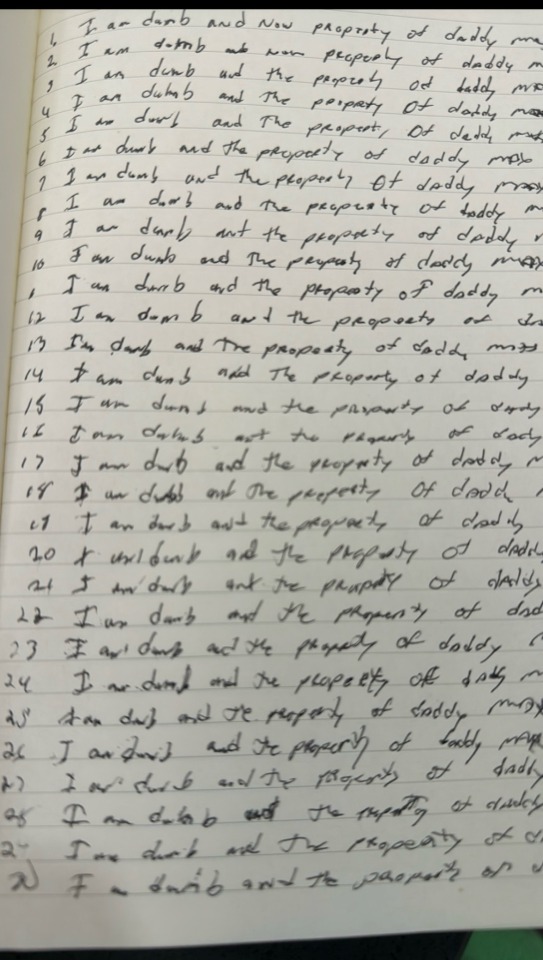 1. I am dumb and now property of daddy
2 I am dumb and now property of daddy
3 I am dumb and the property of daddy
4 I am dumb and the property of daddy
5 I am dumb and the property of daddy
6 I am dumb and the property of daddy
7 I am dumb and the property of daddy
8 I am dumb and the property of daddy
9 I am dumb and the property of daddy
10 I am dumb and the property of daddy
I am dumb and the property of daddy
12 I am dumb and the property of
13 I'm dumb and the property of daddy
14 I am dumb and the property of daddy
15 I am dumb and the property of daddy
16 I am dumb and the property of
17 I am dumb and the property of daddy
18 I am dumb and the property of daddy
19 I am dumb and the property of daddy
20 I am dumb and the property of daddy
21 I am dumb and the property of daddy
22 I am dumb and the property of
23 I am dumb and the property of daddy
24 I am dumb and the property of daddy
25 I am dumb and the property of daddy
26 I am dumb and the property of daddy
27 I am dumb and the property of daddy
28 I am dumb and the property of daddy
I am dumb and the property of
30 I am dumb and the property of